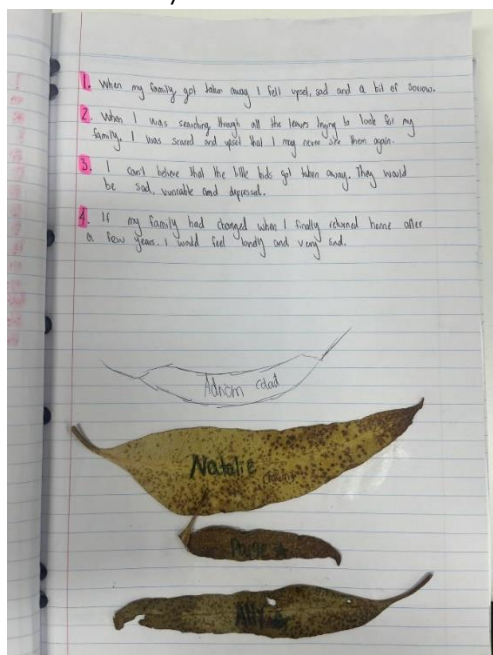 1. When my family got taken away I felt upset, sad and a bit of sorrow.
2. When I was searching through all the leaves trying to look for my
family. I was scared and upset that I may never see them again.
3. I can't believe that the little kids got taken away. They would
be sad, and depressed.
4. If my family had changed when I finally returned home after
a few years. I would feel lonely and very sad.
(dad)
Natalie
Paige